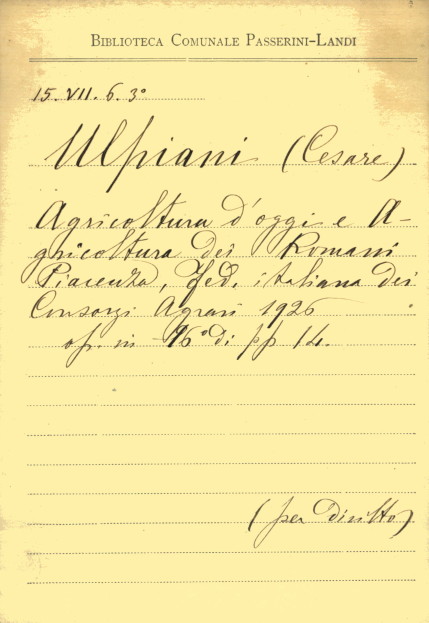 BIBLIOTECA COMUNALE PASSERINI-LANDI
15. VII. 6. 3º
Ulpiani (Cesare)
Agricoltura d'oggi e A-
gricoltura dei Romani
Piacenza, Fed. italiana dei
Consorzi Agrari 1926
op. in -16º di pp 14.
(per diritto)